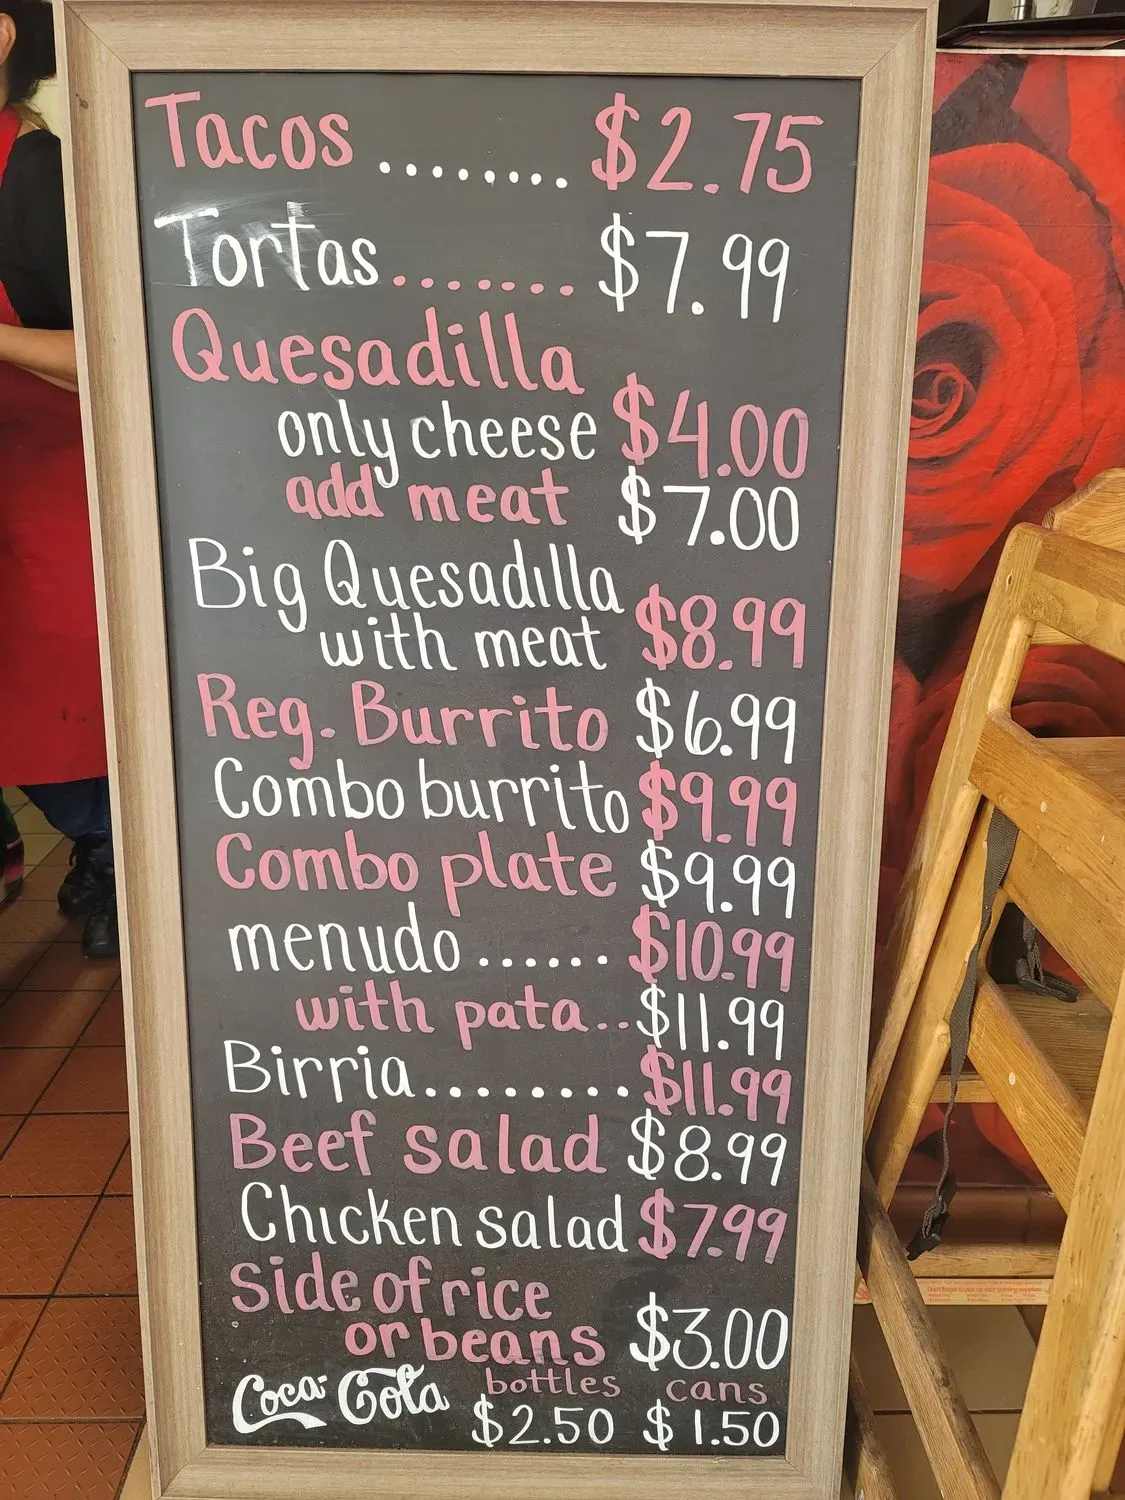 Tacos ........ $2.75
Tortas ....... $7.99
Quesadilla
only cheese $4.00
add meat $7.00
Big Quesadilla
with meat $8.99
Reg. Burrito $6.99
Combo burrito $9.99
Combo plate $9.99
menudo ...... $10.99
with pata.. $11.99
Birria ........ $11.99
Beef salad $8.99
Chicken salad $7.99
Side of rice
or beans $3.00
Coca-Cola bottles cans
$2.50 $1.50